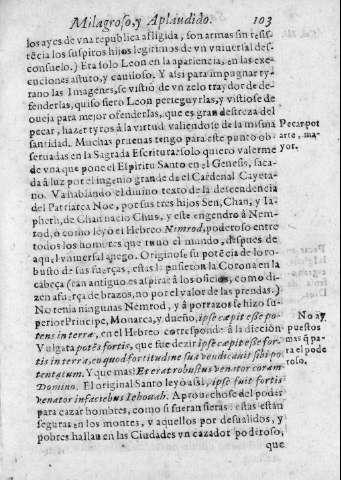 Milagroso, y Aplaudido. 103
los ayes de vna republica afligida, son armas sin resis-
tẽcia los suspiros hijos legitimos de vn vniuersal des-
consuelo.) Era solo Leon en la apariencia, en las exe-
cuciones astuto, y cauiloso. Y assi para impugnar ty-
rano las Imagenes, se vistiò de vn zelo traydor de de-
fenderlas, quiso fiero Leon perseguyrlas, y vistiose de
oueja para mejor ofenderlas, que es gran destreza del
pecar, hazer tyros à la virtud valiendose de la misma
santidad. Muchas prueuas tengo para este punto ob-
seruadas en la Sagrada Escritura: solo quiero valerme
de vna que pone el Espiritu Santo en el Genesis, saca-
da à luz por el ingenio grande de el Cardenal Cayeta-
no. Va hablando el diuino texto de la descendencia
del Patriarca Noe, por sus tres hijos Sen, Chan, y Ia-
pheth, de Chan naciò Chus, y este engendrò à Nem-
rod, ò como leyò el Hebreo Nimrod, poderoso entre
todos los hombres que tuuo el mundo, despues de
aquel vniuersal anego. Originose su potẽcia de lo ro-
busto de sus fuerças, estas le pusieron la Corona en la
cabeça (tan antiguo es aspirar à los oficios, como di-
zen à fuerça de brazos, no por el valor de las prendas.)
No tenia ningunas Nemrod, y à porrazos se hizo su-
perior Principe, Monarca, y dueño, ipse cæpit esse po-
tens in terra, en el Hebreo corresponde à la dicciòn
Vulgata potẽs fortis, que fue dezir ipse cæpit esse for-
tis in terra, eo quod fortitudine sua vendicauit sibi po-
tentatum. Y que mas? Et erat robustus venator coram
Domino. El original Santo leyò assi, ipse fuit fortis
venator in faciebus Iehouah. Aprouechose del poder
para cazar hombres, como si fueran fieras: estas están
seguras en los montes, y aquellos por desualidos, y
pobres hallan en las Ciudades vn cazador poderoso,
que
Pecar por
arte, ma-
yor.
No ay
puestos
mas q̃ pa-
ra el pode
roso.